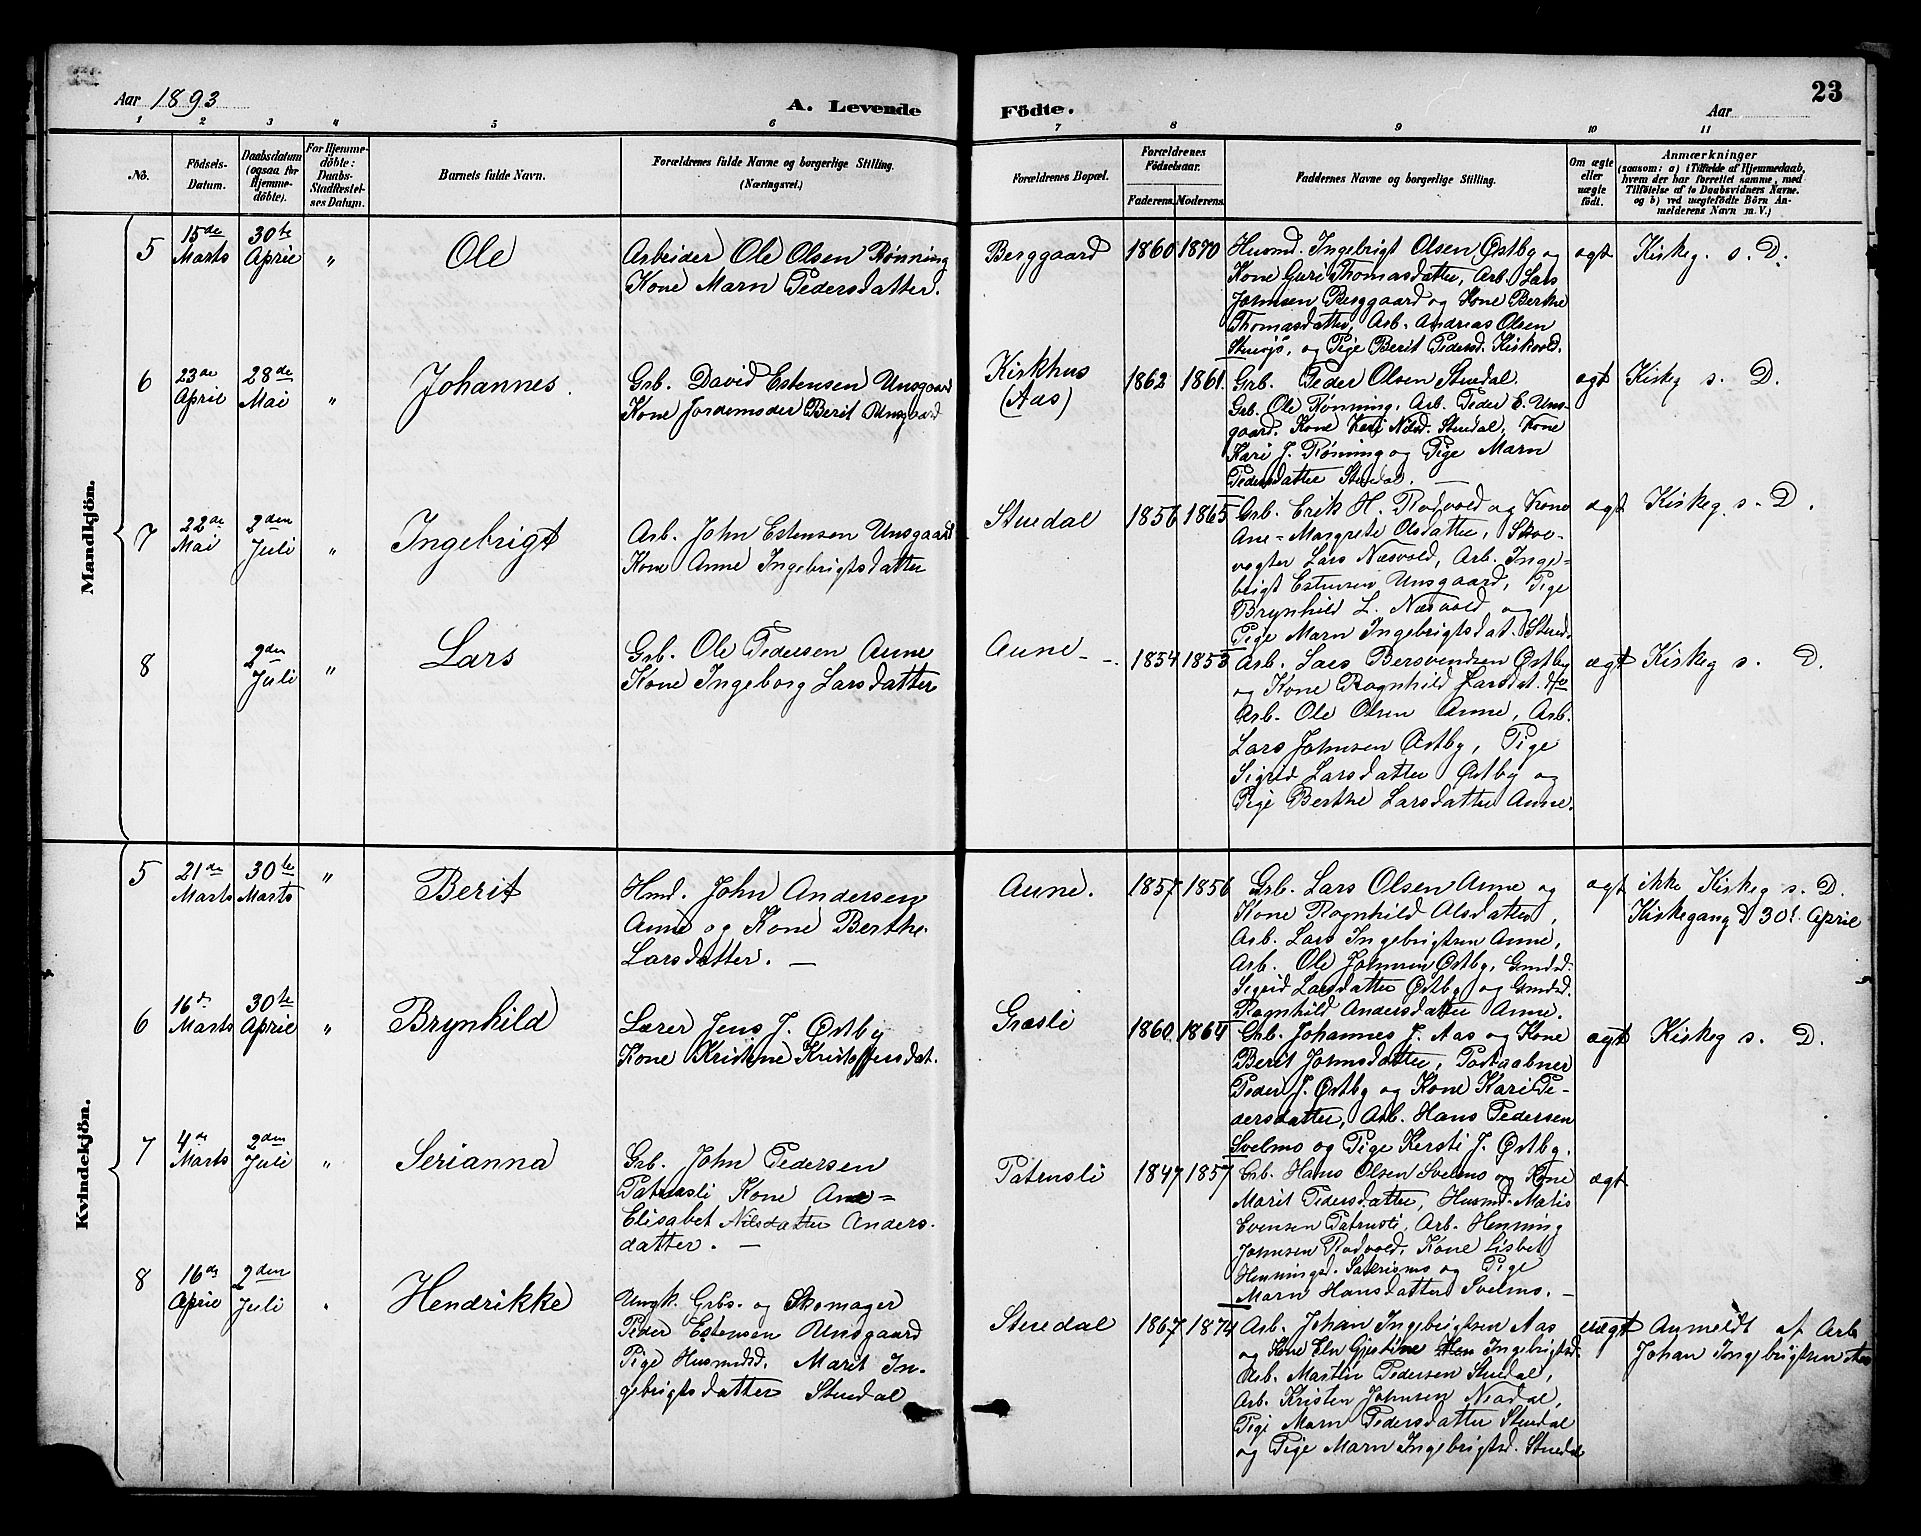 Aar 1893
A. Levende
Födte.
Aar
23
1 2 3 4 5 6 7 8 9 10 11
No.
Födsels-
Datum.
Daabsdatum
(ogsaa for
Hjemme-
döbte).
For Hjemme-
döbte:
Daabs-
Stadfæstel-
ses Datum.
Barnets fulde Navn.
Forældrenes fulde Navne og borgerlige Stilling.
(Næringsvei.)
Forældrenes Bopæl.
Forældrenes
Födselsaar.
Faderens. Moderens.
Faddernes Navne og borgerlige Stilling.
Om ægte
eller
uægte
födt.
Anmærkninger
(saasom: a) i Tilfælde af Hjemmedaab,
hvem der har forrettet samme, med
Tilföielse af to Daabsvidners Navne.
og b) ved uægtefödte Börn An-
melderens Navn m. V.)
Mandkjön.
5
15de
Marts
30te
April
"
Ole
Arbeider Ole Olsen Rønning
Kone Marn Pedersdatter.
Berggaard
1860 1870
Husmd. Ingebrigt Olsen Østby og
Kone Guri Thomasdatter, Arb. Lars
Johnsen Berggaard og Kone Berthe
Thomasdatter, Arb. Andreas Olsen
og Pige Berit Pedersd. Kirkvold.
ægt
Kirkeg. s. D.
6
23de
April
28de
Mai
"
Johannes.
Grb. David Estensen Unsgaard
Kone Jordemoder Berit Unsgaard
Kirkhus
(Aas)
1862 1861
Grb. Peder Olsen Stuedal.
Grb. Ole Rønning, Arb. Peder E. Uns-
gaard. Kone Kari Nilsd. Stuedal, Kone
Kari J. Rønning og Pige Marn
Pedersdatter Stuedal. —
ægt
Kirkeg s. D.
7
22de
Mai
2den
Juli
"
Ingebrigt
Arb. John Estensen Unsgaard
Kone Anne Ingebrigtsdatter
Stuedal
1856 1865
Grb. Erik H. Rodvold og Kone
Ane-Margrete Olsdatter, Skov-
vogter Lars Næsvold, Arb. Inge-
brigt Estensen Unsgaard, Pige
Brynhild L. Næsvold og
Pige Marn Ingebrigtsdat. Stued.
ægt
Kirkeg s. D.
8
2den
Juli
"
Lars
Grb. Ole Pedersen Aune
Kone Ingeborg Larsdatter
Aune
1854 1853
Arb. Lars Bersvendsen Østby
og Kone Ragnhild Larsdat.
Arb. Ole Olsen Aune, Arb.
Lars Johnsen Østby, Pige
Sigrid Larsdatter Østby og
Pige Berthe Larsdatter Aune.
ægt
Kirkeg s. D.
Kvindekjön.
5
21de
Marts
30te
Marts
"
Berit
Hmd. John Andersen
Aune og Kone Berthe
Larsdatter. —
Aune.
1857 1856
Grb. Lars Olsen Aune og
Kone Ragnhild Olsdatter,
Arb. Lars Ingebrigtsen Aune,
Arb. Ole Johnsen Østby, Gmdsd.
Sigrid Larsdatter Østby og Gmdsd.
Ragnhild Andersdatter Aune.
ægt
ikke Kirkeg s. D.
Kirkegang D 30t April
6
16d
Marts
30te
April
"
Brynhild
Lærer Jens J. Østby
Kone Kristine Kristoffersdat.
Græsli
1860 1864
Grb. Johannes J. Aas og Kone
Berit Johnsdatter, Postaabner
Peder J. Østby og Kone Kari Pe-
dersdatter, Arb. Hans Pedersen
Svelmo og Pige Kersti J. Østby.
ægt
Kirkeg s. D.
7
4de
Marts
2den
Juli
"
Serianna
Grb. John Pedersen
Patrusli Kone Ane-
Elisabet Nilsdatter Anders-
datter. —
Patrusli
1847 1857
Grb. Hans Olsen Svelmo og Kone
Marit Pedersdatter, Husmd. Matis
Evensen Patrusli, Arb. Henning
Johnsen Rodvold, Kone Lisbet
Henningsd. og Pige
Marn Hansdatter Svelmo. —
ægt
8
16de
April
2den
Juli
"
Hendrikke
Ungk. Grbs. og Skomager
Peder Estensen Unsgaard
Pige Husmdsd. Marit In-
gebrigtsdatter Stuedal
Stuedal
1867 1874
Arb. Johan Ingebrigtsen Aas
og Kone Eln Gjestine Ingebrigtsd.
Arb. Martin Pedersen Stuedal,
Arb. Kristen Johnsen Neadal,
Pige Marn Pedersdatter Stuedal
og Pige Marn Ingebrigtsd. Stuedal
uægt
Anmeldt af Arb
Johan Ingebrigtsen Aas